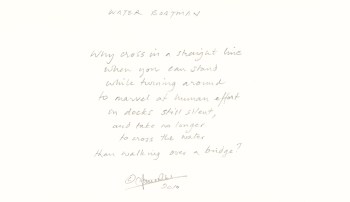 WATER BOATMAN
Why cross in a straight line
When you can stand
while turning around
to marvel at human effort
in docks still silent,
and take no longer
to cross the water
than walking over a bridge?